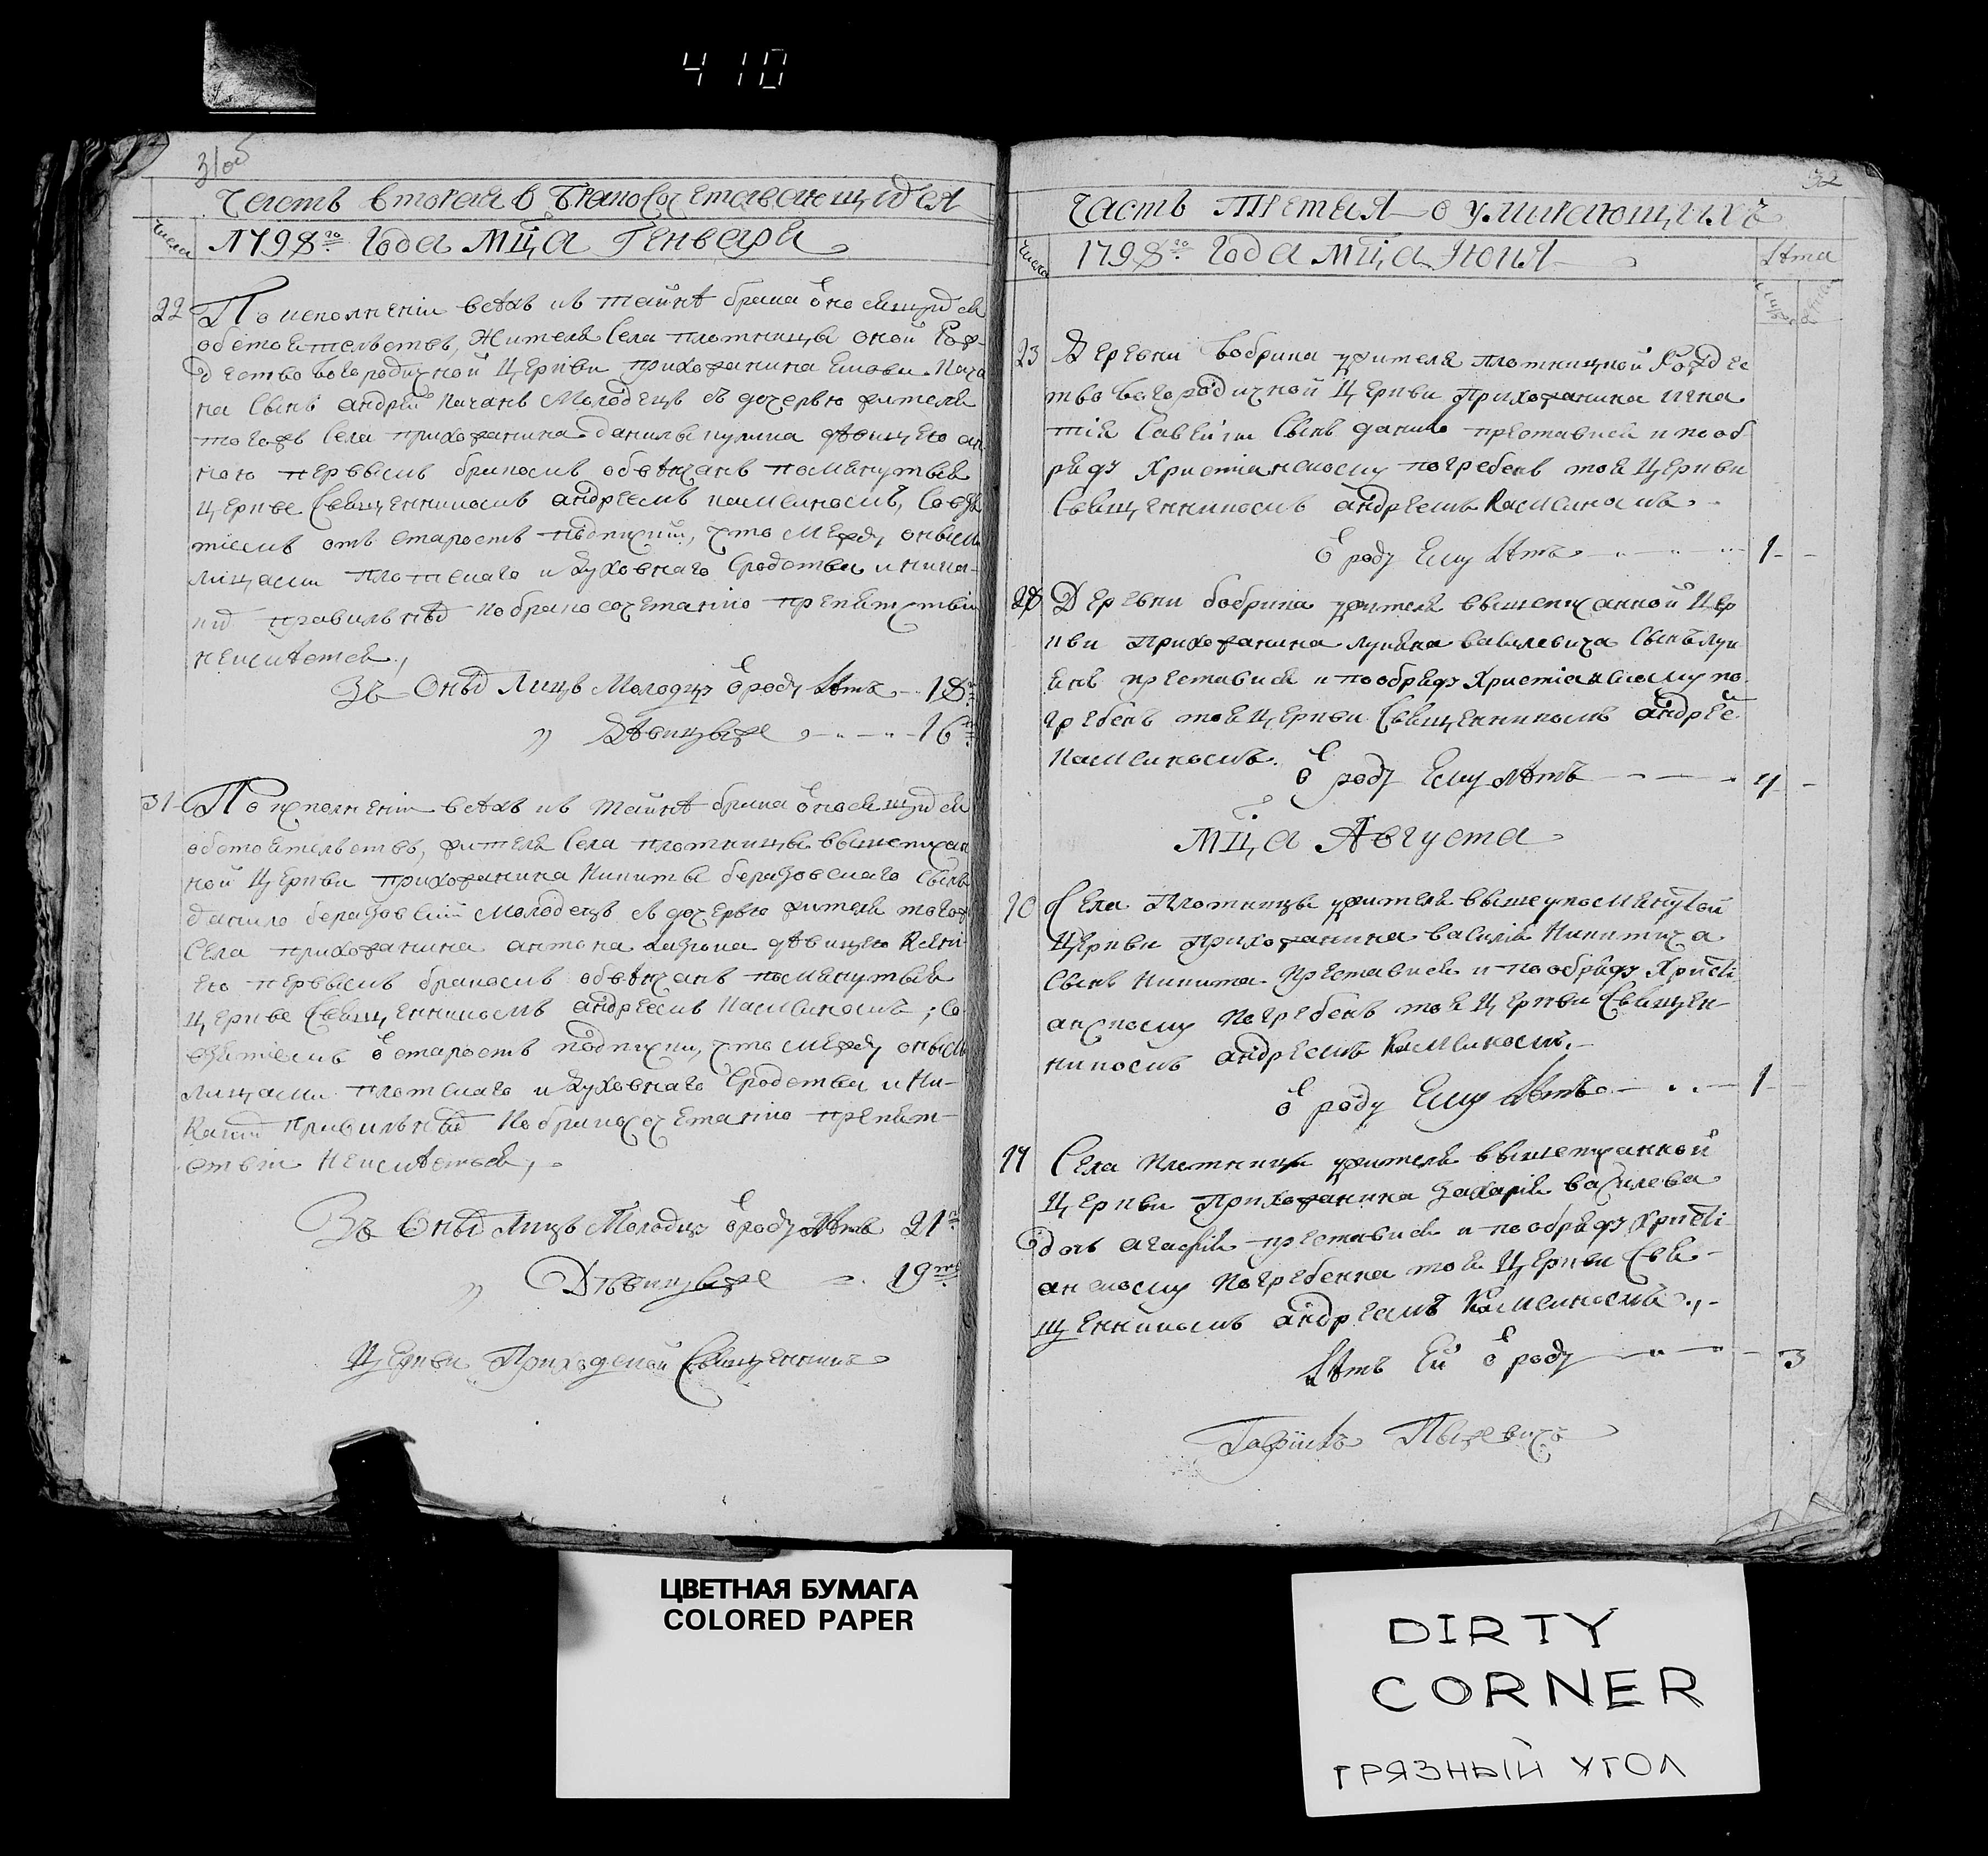 410
31об
Часть вторая о бракосочетавающихся
Число
1798го Года Мца Генваря
22 По исполненіи всѣхъ къ тайнѣ брака относящихся
обстоятельствъ, жителя Села плотницы оной Рож-
дество богородичной Церкви прихожанина
на Сынъ андрей качанъ Молодецъ съ дочерью жителя
тогожъ Села прихожанина данилы кулика дѣвицею ан
ною первымъ бракомъ обвѣнчанъ помянутыя
церкве Священникомъ андреемъ
тіемъ отъ старостъ подписки, что между оными
лицами плотскаго и духовнаго Сродства и ника-
кихъ правильныхъ кобракосочетанію препятствій
неимѣется.,
Зъ Оныхъ Лицъ Молодцу ѿ роду Лѣтъ 18
„ Дѣвицыже 16
31 По исполненіи всѣхъ къ тайнѣ брака относящихся
обстоятельствъ, жителя Села плотницы вышеписан
ной Церкви прихожанина Никиты березовскаго Сынъ
данило березовскій молодецъ съ дочерью жителя тогож
Села прихожанина антона дѣвицею Ксені-
ею первымъ бракомъ обвѣнчанъ помянутыя
Церкве Священникомъ андреемъ; со
взятіемъ ѿ старостъ подписки, что между оными
лицами плотскаго и духовнаго Сродства и Ни-
какихъ правильныхъ кобракосочетанію препят-
ствій неимѣется,
Зъ Оныхъ Лицъ Молодцу ѿ роду Лѣтъ 21
„ Дѣвицыже 19
Церкви Приходской Священникъ
32
Часть Третия о умирающихъ
Число
1798го Года Мца Июня
Лѣта
23 Деревни бобрика жителя плотницкой Рождес
тво богородичной Церкви Прихожанина игна
тія Сынъ данило преставися и пооб
ряду Христіанскому погребенъ тоя Церкви
Священникомъ андреемъ
ѿ роду Ему Лѣтъ 1
28 Деревни бобрика жителя вышеписанной Цер
кви Прихожанина лукяна василевича Сынъ лук
янъ преставися и пообряду Христіанскому по
гребенъ тоя Церкви Священникомъ андрее

ѿ роду Ему лѣтъ 4
Мца Августа
10 Села Плотницы жителя вышеупомянутой
Церкви Прихожанина василія Никитича
Сынъ Никита Преставися и пообряду Христі
анскому Погребенъ тоя Церкви Священ
никомъ андреемъ
ѿ роду Ему Лѣтъ 1
14 Села Плотницы жителя вышеписанной
Церкви Прихожанина Захарія василева
дочь агафія преставися и пообряду Христі
анскому Погребенна тоя Церкви Свя-
щенникомъ андреемъ
Лѣтъ Ей ѿ роду 3
ЦВЕТНАЯ БУМАГА
COLORED PAPER
DIRTY
CORNER
ГРЯЗНЫЙ УГОЛ